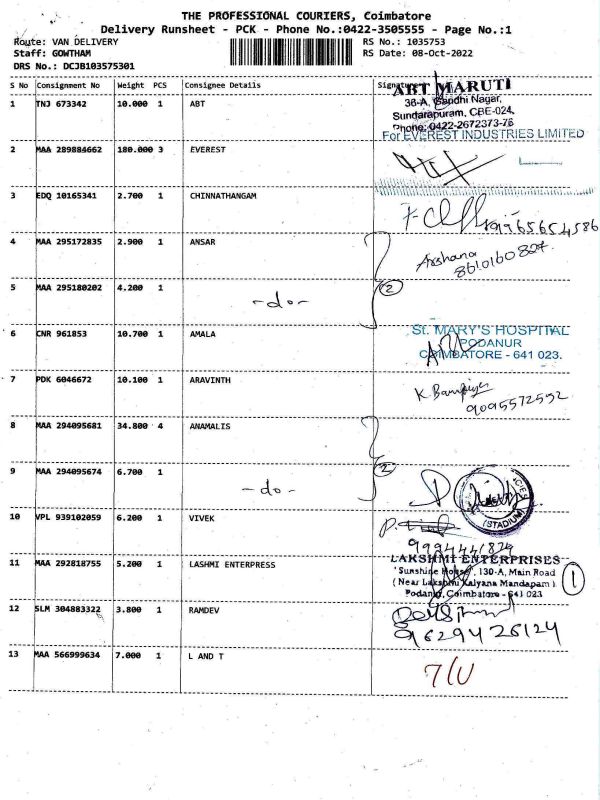 THE PROFESSIONAL COURIERS, Coimbatore
Delivery Runsheet - PCK - Phone No.:0422-3505555 - Page No.:1
Route: VAN DELIVERY
RS No.: 1035753
Staff: GOWTHAM
RS Date: 08-Oct-2022
DRS No.: DCJB103575301
S No Consignment No Weight PCS Consignee Details Signature
ABT MARUTI
1 TNJ 673342 10.000 1 ABT
38-A, Gandhi Nagar,
Sundarapuram, CBE-024.
Phone: 0422-2672373-76
For EVEREST INDUSTRIES LIMITED
2 MAA 289884662 180.000 3 EVEREST
3 EDQ 10165341 2.700 1 CHINNATHANGAM
4 MAA 295172835 2.900 1 ANSAR
Arshana
8610160827.
5 MAA 295180202 4.200 1
-do-
2
6 CNR 961853 10.700 1 AMALA
St. MARY'S HOSPITAL
PODANUR
COIMBATORE - 641 023.
7 PDK 6046672 10.100 1 ARAVINTH
9095572592
8 MAA 294095681 34.800 4 ANAMALIS
9 MAA 294095674 6.700 1
-do-
2
(STADIUM)
10 VPL 939102059 6.200 1 VIVEK
9994441824
11 MAA 292818755 5.200 1 LASHMI ENTERPRESS
LAKSHMI ENTERPRISES
"Sunshine House", 130-A, Main Road
(Near Lakshmi Kalyana Mandapam)
Podanur, Coimbatore - 641 023
1
12 SLM 304883322 3.800 1 RAMDEV
9629426124
13 MAA 566999634 7.000 1 L AND T
7/U